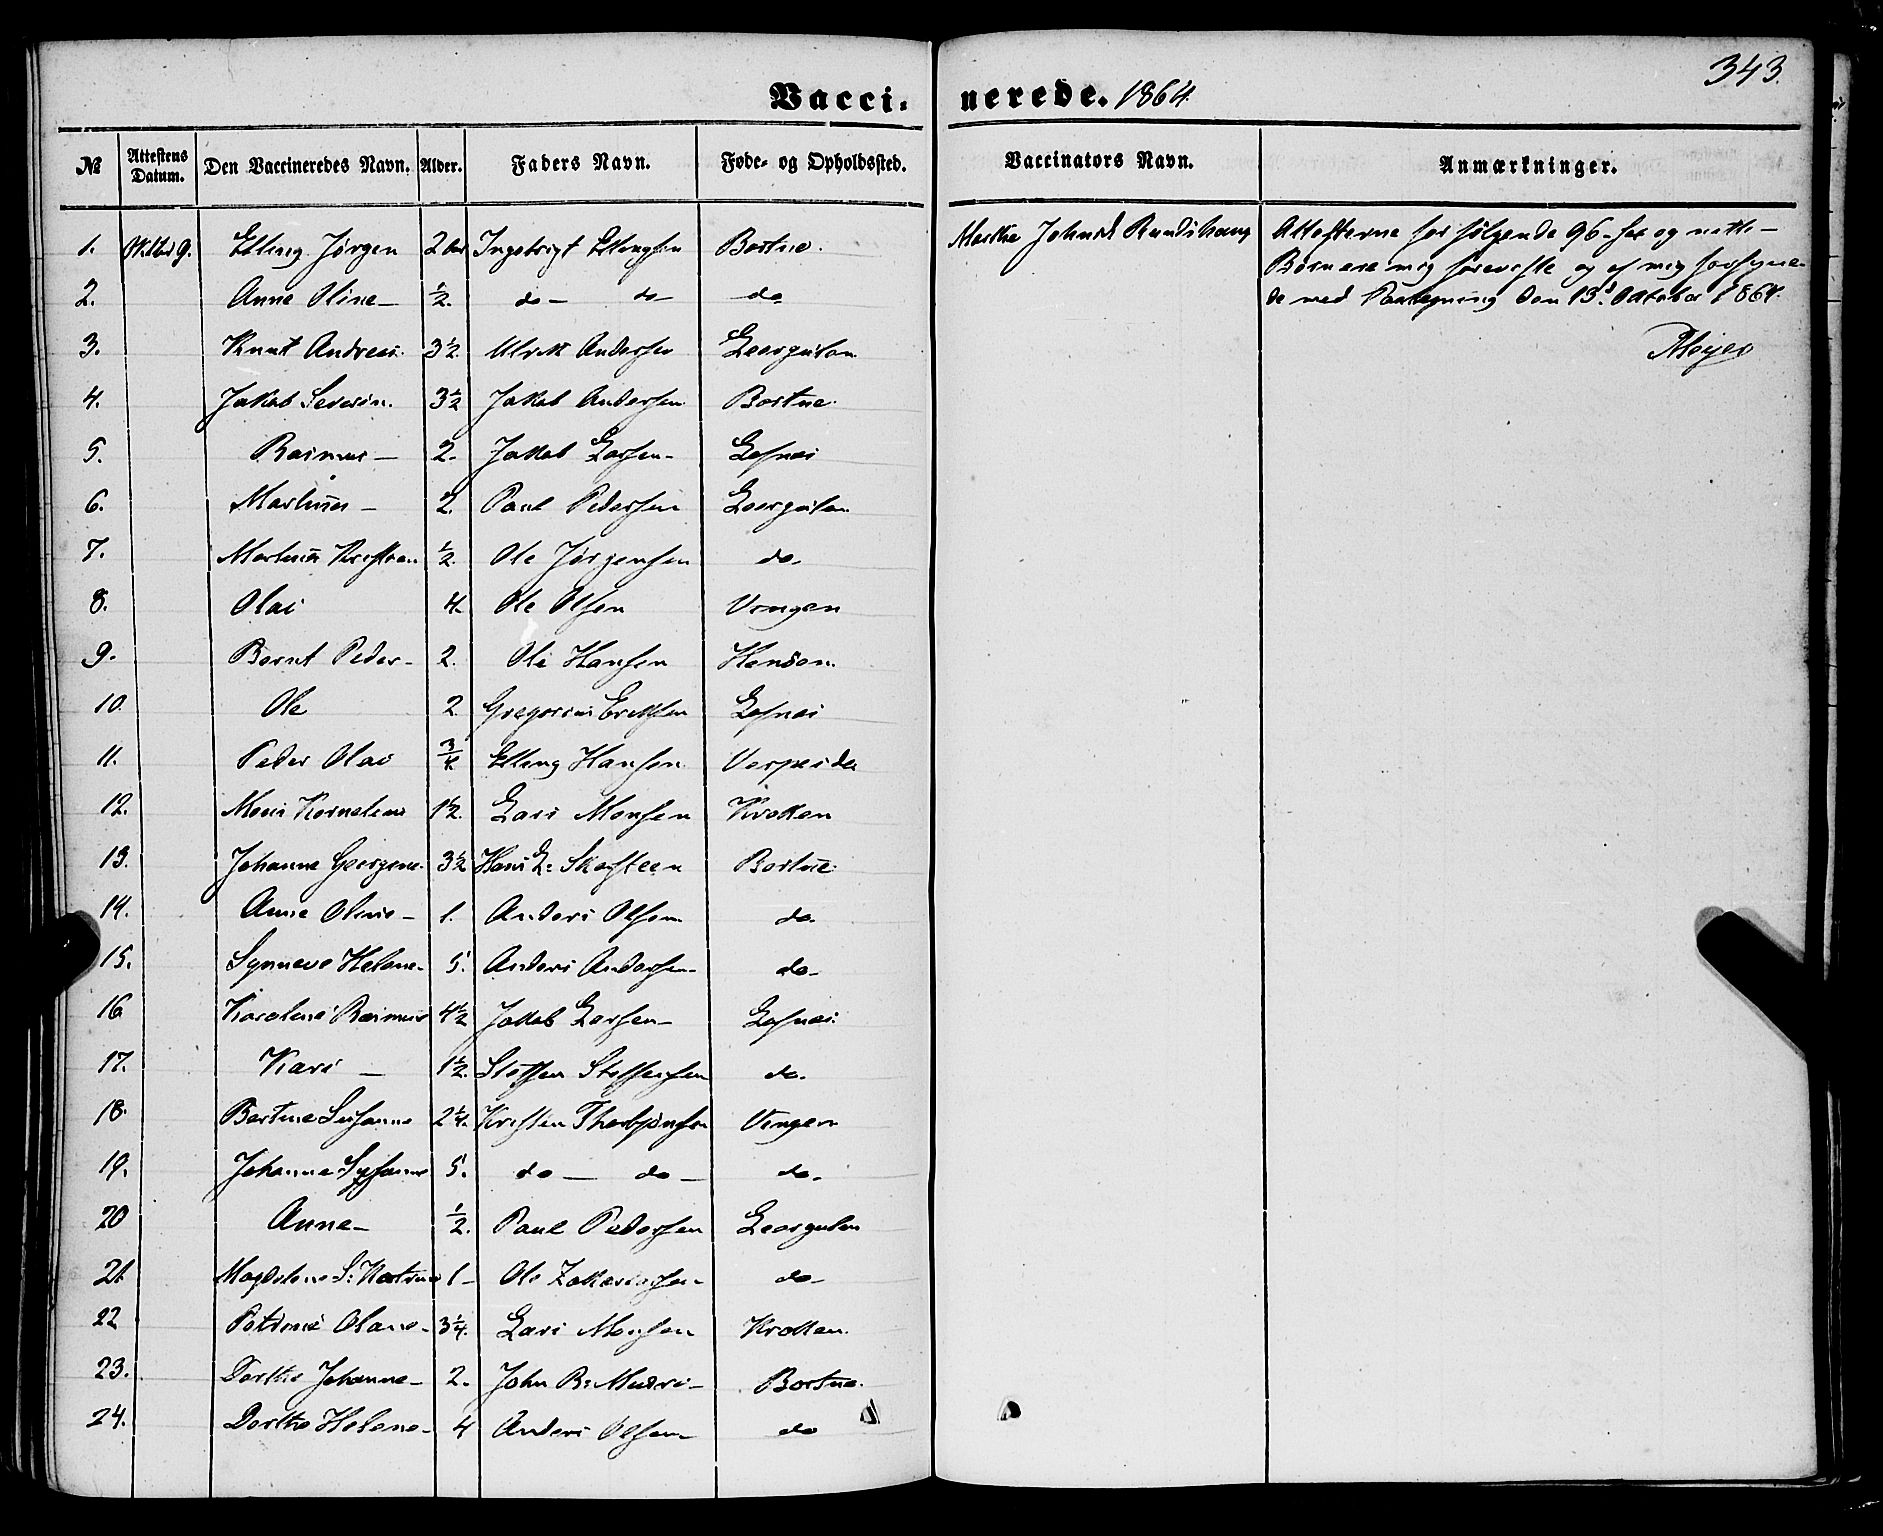 343.
Vacci: nerede. 1864.
№ Attestens Datum. Den Vaccineredes Navn. Alder. Faders Navn. Føde- og Opholdssted. Vaccinators Navn. Anmærkninger.
1. Oktbr 9. Elling Jørgen 2 Ingebrigt Ellingsen Bortne. Marthe Johnsd Attesterne for følgende 96 og netti-
Børn ere mig foreviste og af mig forsyne-
2. Anne Oline - ½. do - do - do de med Paategning den 13d Oktober 1864.
3. Knut Andreas. 3½ Ulrik Andersen Leergulen Meyer
4. Jakob Severin. 3½ Jakob Andersen Bortne.
5. Rasmus - 2. Jakob Larsen - Lefnæs
6. Martinus - 2. Paul Pedersen Leergulen
7. Martinus Kristian ½. Ole Jørgensen do.
8. Olai 4. Ole Olsen Vengen
9. Bernt Peder - 2. Ole Hansen
10. Ole 2 Gregorius Eriksen Lefnæs
11. Peder Olai ¾ Elling Hansen
12. Mons Kornelius 1½. Lars Monsen Kroken
13. Johanne Georgine. 3½ Hans L: Skafteen Bortne.
14. Anne Oline - 1. Anders Olsen do.
15. Synneve Helene - 5. Anders Andersen - do -
16 Karoline Rasmine 4½ Jakob Larsen - Lefnæs.
17. Kari - 1½. Steffen Steffensen do.
18. Bertine Susanne 2¼. Kristen Thorbjønsen Vengen
19. Johanne Sussanne 5. do - do - do.
20 Anne - ½. Paul Pedersen Leergulen
21 Magdalene S: Katrine 1 - Ole Zakariassen - do -
22 Petrine Olane - 3¼. Lars Monsen Kroken.
23. Dorthe Johanne - 2. John R: - Bortne.
24. Dorthe Helene - 4 Anders Olsen - do